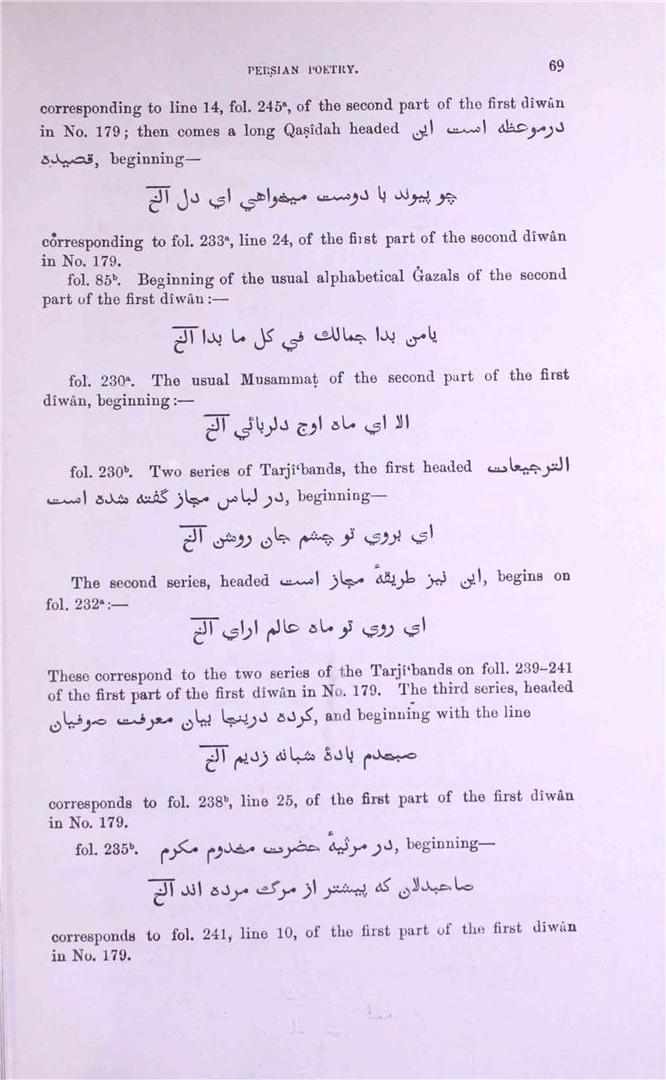 PERSIAN POETRY. 69
corresponding to line 14, fol. 245ᵃ, of the second part of the first dîwân
in No. 179; then comes a long Qaṣîdah headed درموعظه است این
قصیده, beginning—
چو پیوند با دوست میخواهي اي دل الخ
corresponding to fol. 233ᵃ, line 24, of the first part of the second dîwân
in No. 179.
fol. 85ᵇ. Beginning of the usual alphabetical Ġazals of the second
part of the first dîwân:—
یامن بدا جمالك في كل ما بدا الخ
fol. 230ᵃ. The usual Musammaṭ of the second part of the first
dîwân, beginning:—
الا اي ماه اوج دلربائي الخ
fol. 230ᵇ. Two series of Tarjî‘bands, the first headed الترجیعات
در لباس مجاز گفته شده است, beginning—
اي بروي تو چشم جان روشن الخ
The second series, headed این نیز طریقهٔ مجاز است, begins on
fol. 232ᵃ:—
اي روي تو ماه عالم اراي الخ
These correspond to the two series of the Tarjî‘bands on foll. 239–241
of the first part of the first dîwân in No. 179. The third series, headed
کرده درینجا بیان معرفت صوفیان, and beginning with the line
صبحدم بادهٔ شبانه زدیم الخ
corresponds to fol. 238ᵇ, line 25, of the first part of the first dîwân
in No. 179.
fol. 235ᵇ. در مرثیهٔ حضرت مخدوم مکرم, beginning—
صاحبدلان که پیشتر از مرگ مرده اند الخ
corresponds to fol. 241, line 10, of the first part of the first dîwân
in No. 179.